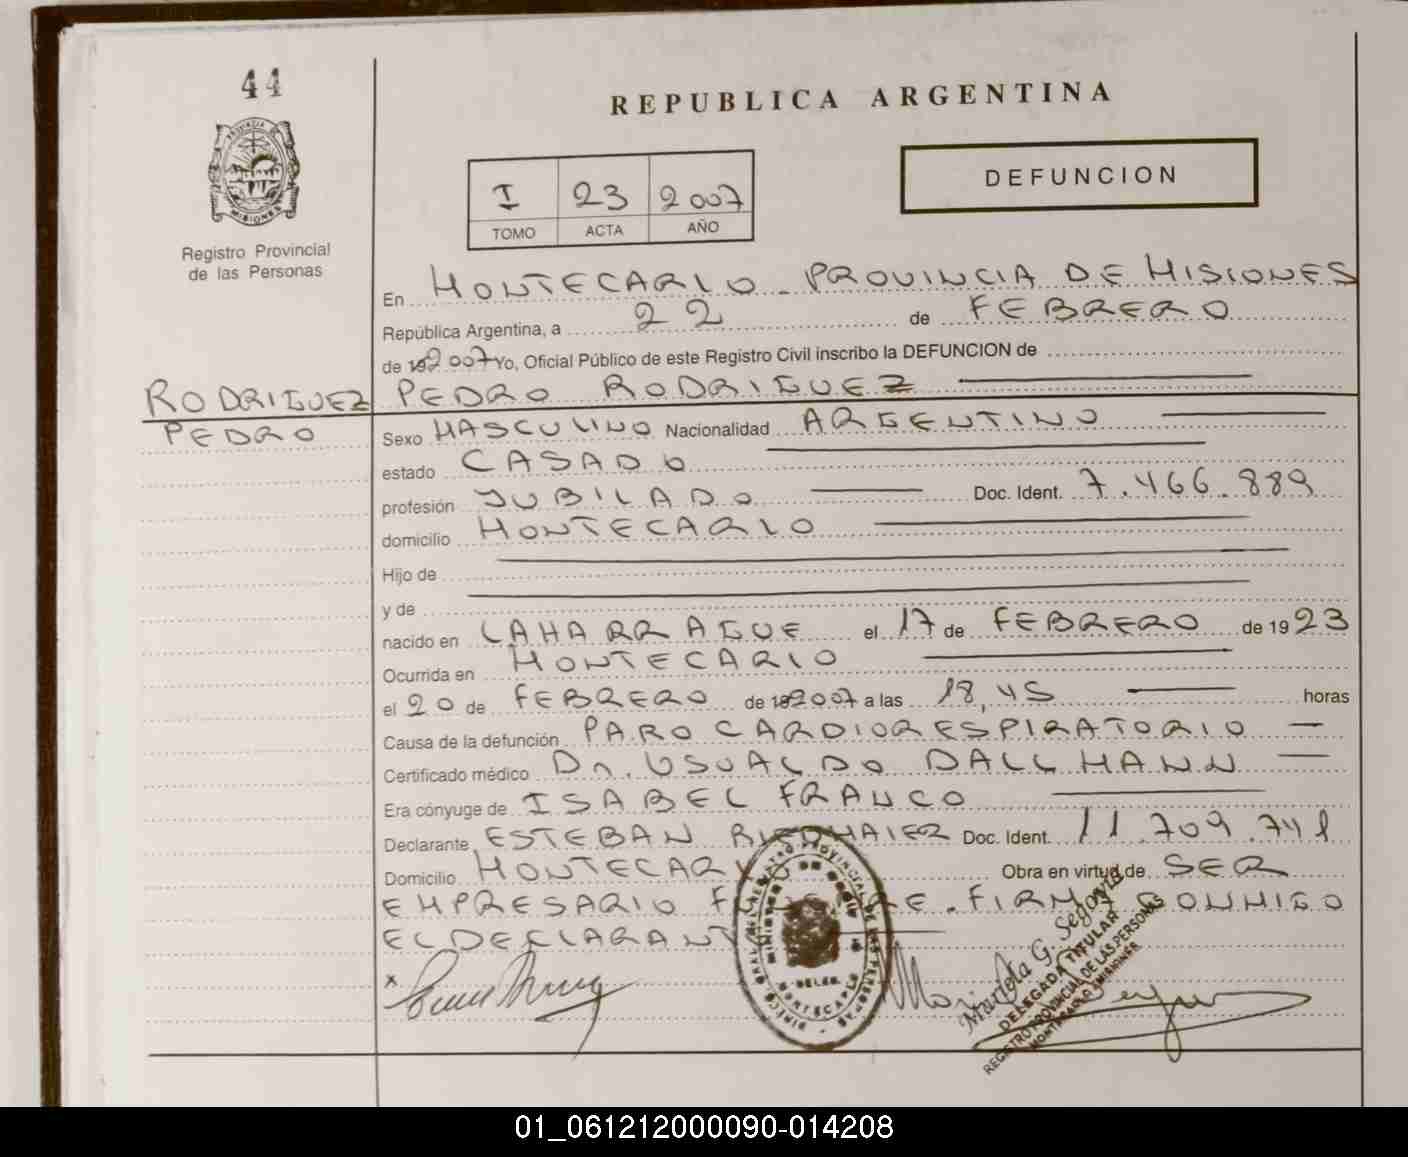 44
REPUBLICA ARGENTINA
DEFUNCION
I 23 2007
TOMO ACTA AÑO
PROVINCIA DE MISIONES
Registro Provincial
de las Personas
En MONTECARLO - PROVINCIA DE MISIONES
República Argentina, a 22 de FEBRERO
de 2007 Yo, Oficial Público de este Registro Civil inscribo la DEFUNCION de
RODRIGUEZ PEDRO RODRIGUEZ
PEDRO
Sexo MASCULINO Nacionalidad ARGENTINO
estado CASADO
profesión JUBILADO Doc. Ident. 7.466.889
domicilio MONTECARLO
Hijo de
y de
nacido en CAHARRAGUE el 17 de FEBRERO de 1923
Ocurrida en MONTECARLO
el 20 de FEBRERO de 2007 a las 18,45 horas
Causa de la defunción PARO CARDIORESPIRATORIO
Certificado médico Dr. OSVALDO DALLMANN
Era cónyuge de ISABEL FRANCO
Declarante ESTEBAN RIEDMAIER Doc. Ident. 11.709.741
Domicilio MONTECARLO Obra en virtud de SER
EMPRESARIO FIRMA CONMIGO
EL DECLARANTE
Marcela G. Segovia
DELEGADA TITULAR
REGISTRO PROVINCIAL DE LAS PERSONAS
MONTECARLO (MISIONES)
01_061212000090-014208